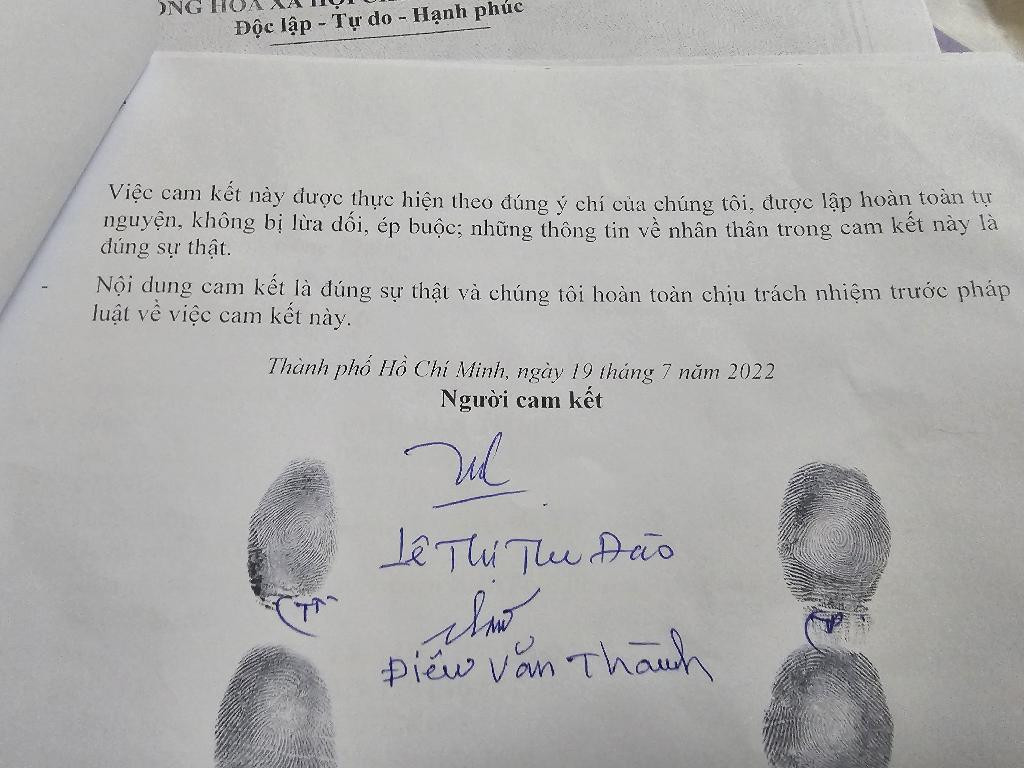 ỘNG HÒA XÃ HỘI
Độc lập - Tự do - Hạnh phúc
Việc cam kết này được thực hiện theo đúng ý chí của chúng tôi, được lập hoàn toàn tự
nguyện, không bị lừa dối, ép buộc; những thông tin về nhân thân trong cam kết này là
đúng sự thật.
- Nội dung cam kết là đúng sự thật và chúng tôi hoàn toàn chịu trách nhiệm trước pháp
luật về việc cam kết này.
Thành phố Hồ Chí Minh, ngày 19 tháng 7 năm 2022
Người cam kết
Lê Thị Thu Đào
Điêu Văn Thành